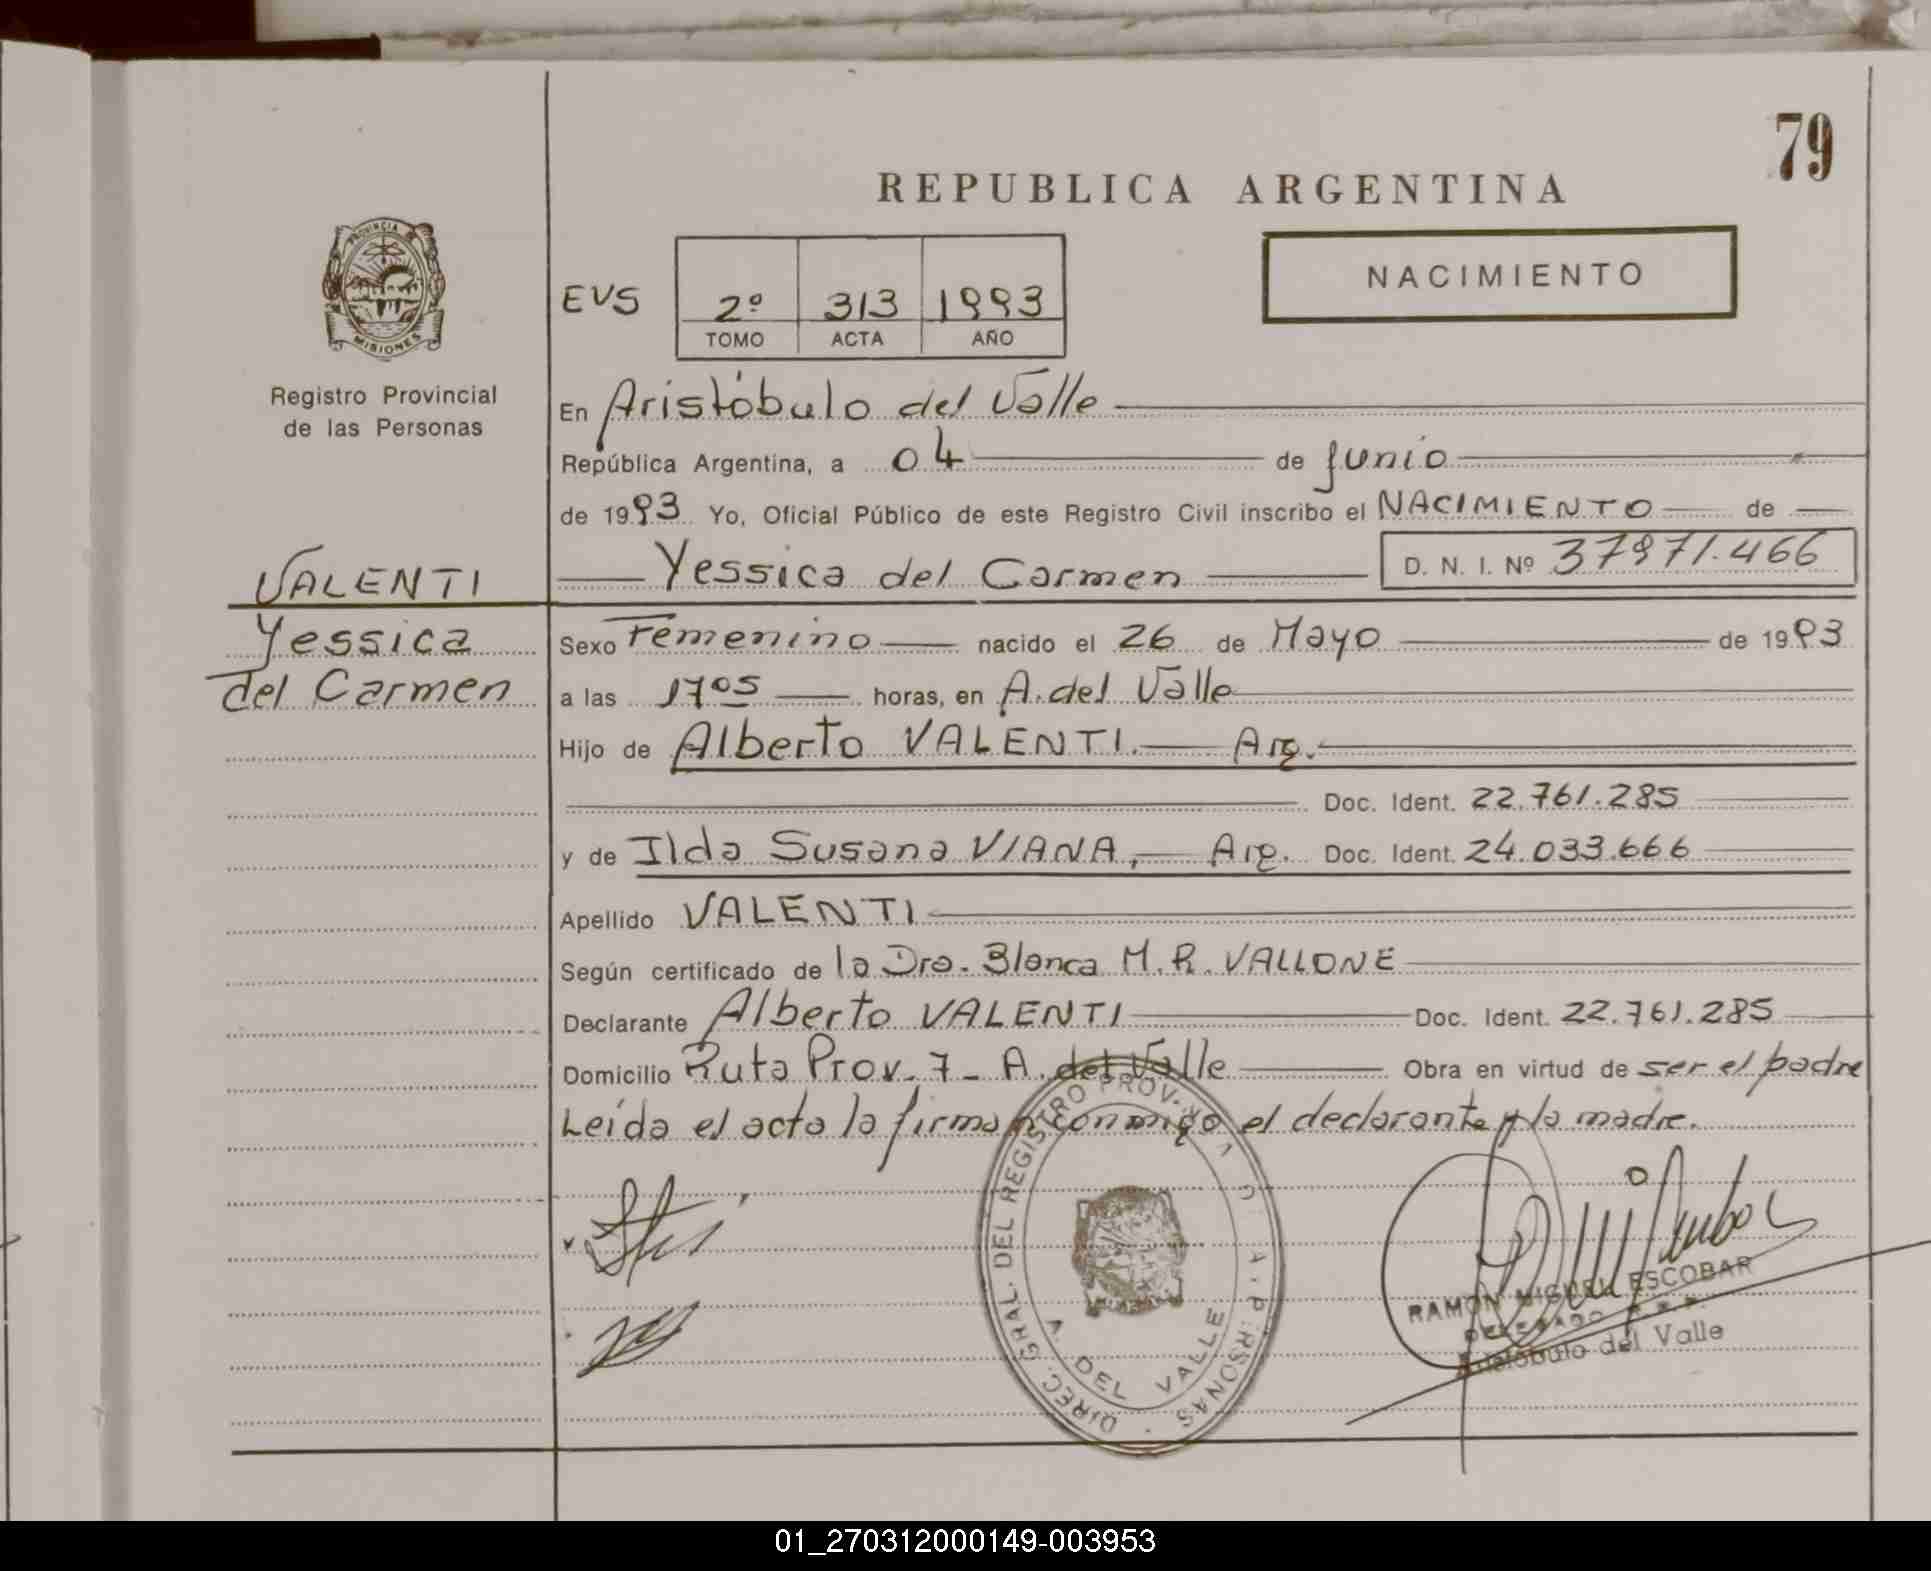 79
REPUBLICA ARGENTINA
NACIMIENTO
PROVINCIA DE
MISIONES
Registro Provincial
de las Personas
EVS
2º 313 1993
TOMO ACTA AÑO
En Aristóbulo del Valle
República Argentina, a 04 de Junio
de 1993 Yo, Oficial Público de este Registro Civil inscribo el NACIMIENTO de
Yessica del Carmen D. N. I. Nº 37971.466
VALENTI
Yessica
del Carmen
Sexo Femenino nacido el 26 de Mayo de 1993
a las 1705 horas, en A. del Valle
Hijo de Alberto VALENTI. Arg.
Doc. Ident. 22.761.285
y de Ilda Susana VIANA, Arg. Doc. Ident. 24.033.666
Apellido VALENTI
Según certificado de la Dra. Blanca M. R. VALLONE
Declarante Alberto VALENTI Doc. Ident. 22.761.285
Domicilio Ruta Prov. 7 - A. del Valle Obra en virtud de ser el padre
Leída el acta la firman conmigo el declarante y la madre.
DIREC. GRAL. DEL REGISTRO PROV. PERSONAS
A. DEL VALLE
RAMON MIGUEL ESCOBAR
DELEGADO
Aristóbulo del Valle
01_270312000149-003953